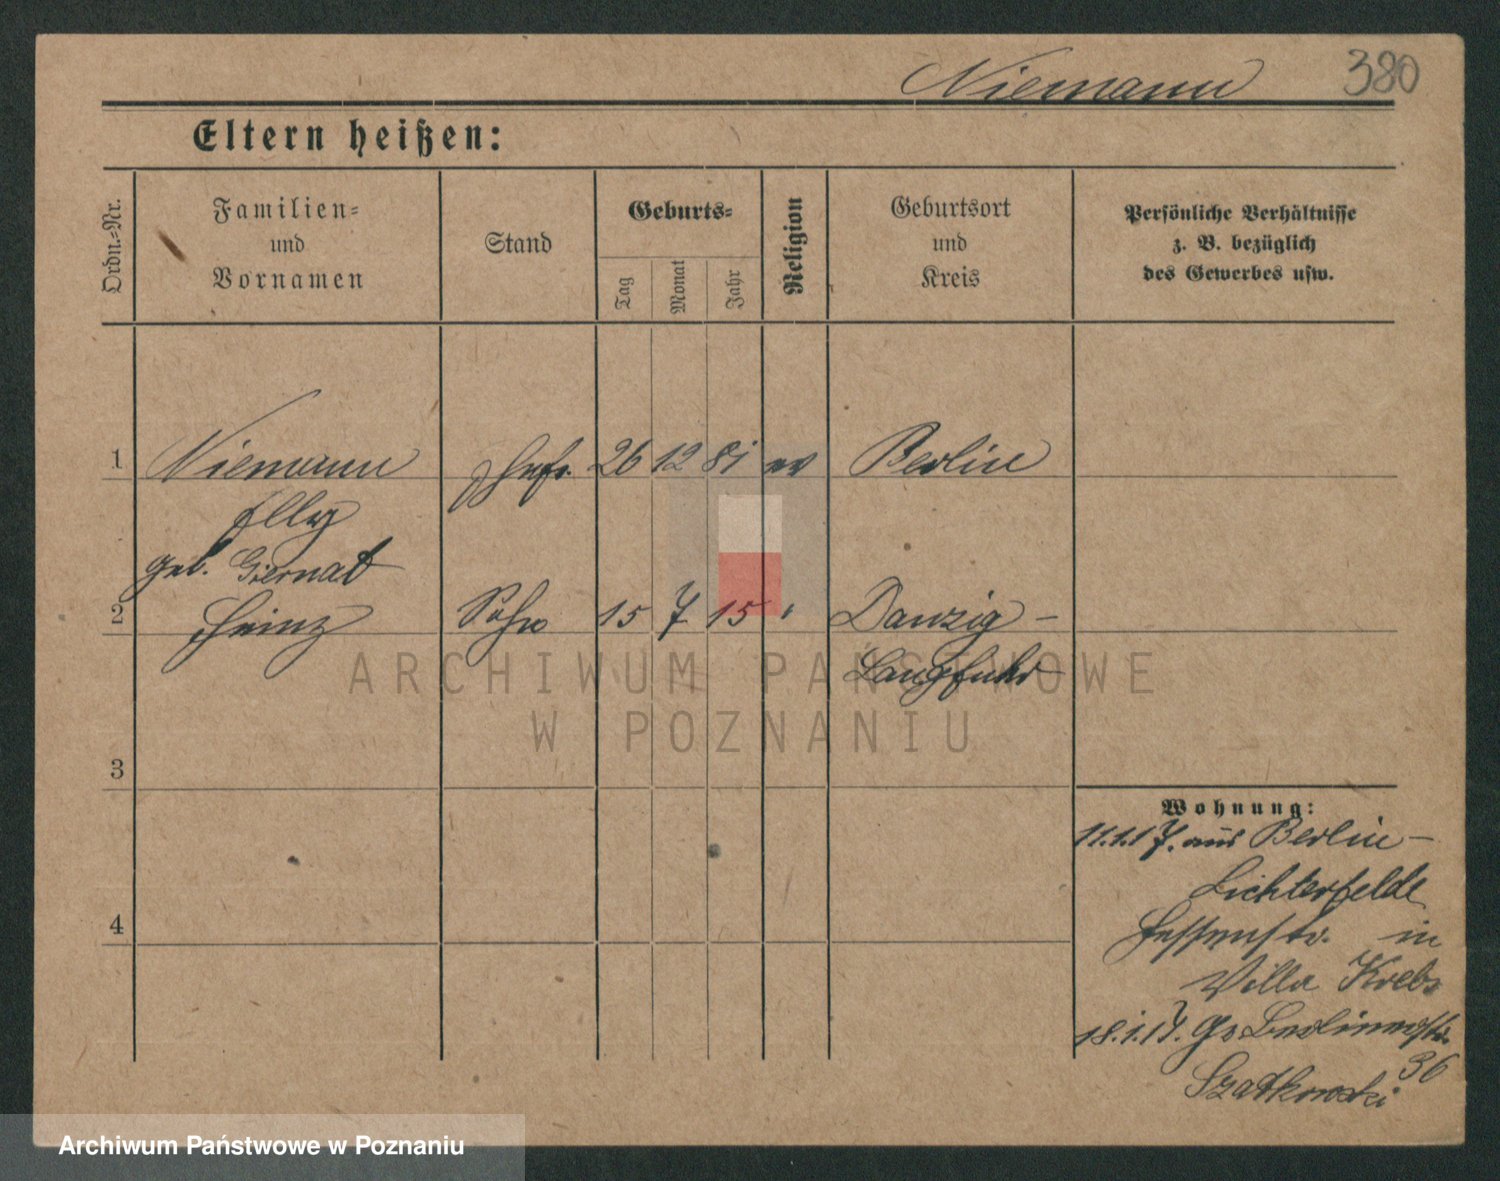 Niemann 380
Eltern heißen:
Ordn.=Nr.
Familien=
und
Vornamen
Stand
Geburts=
Tag
Monat
Jahr
Religion
Geburtsort
und
Kreis
Persönliche Verhältnisse
z. B. bezüglich
des Gewerbes usw.
1 Niemann Ehefr. 26 12 81 ev Berlin
Elly
geb. Giernat
2 Heinz Sohn 15 7 15 " Danzig -
Langfuhr
ARCHIWUM PAŃSTWOWE
W POZNANIU
3
4
Wohnung:
11.1.17. aus Berlin-
Lichterfelde
in
Villa Krebs
18.1.17. Gr Berlinerstr.
36
Szatkowski
Archiwum Państwowe w Poznaniu